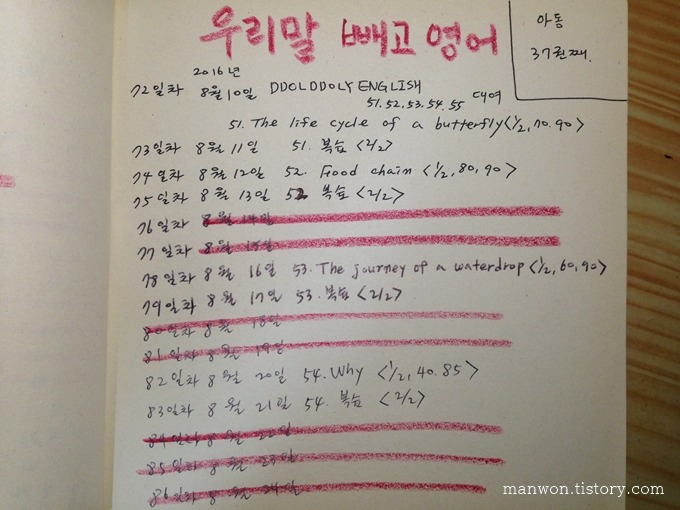 우리말 빼고 영어
아동
37권째.
2016년
72일차 8월 10일 DDOLDDOLY ENGLISH
51.52.53.54.55 대여
51. The life cycle of a butterfly <1/2, 70.90>
73일차 8월 11일 51. 복습 <2/2>
74일차 8월 12일 52. Food chain <1/2, 80, 90>
75일차 8월 13일 52 복습 <2/2>
76일차 8월 14일
77일차 8월 15일
78일차 8월 16일 53. The journey of a waterdrop <1/2, 60, 90>
79일차 8월 17일 53. 복습 <2/2>
80일차 8월 18일
81일차 8월 19일
82일차 8월 20일 54. Why <1/2, 40.85>
83일차 8월 21일 54. 복습 <2/2>
84일차 8월 22일
85일차 8월 23일
86일차 8월 24일
manwon.tistory.com